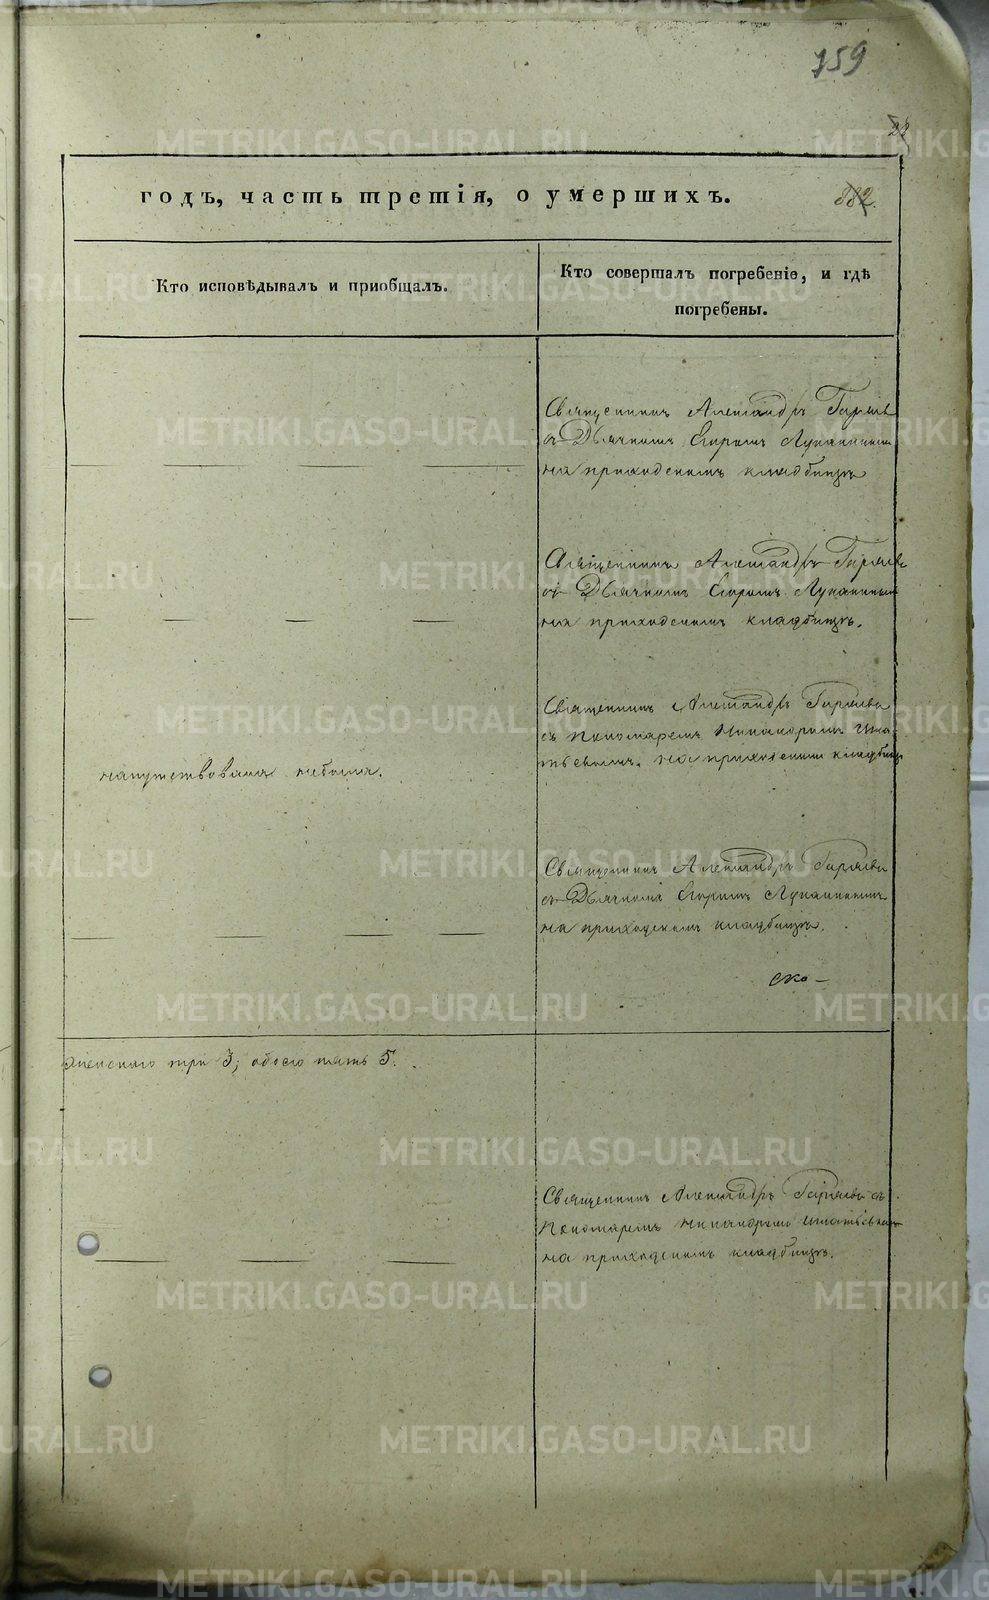 159
22
годъ, часть третія, о умершихъ.
882.
Кто исповѣдывалъ и пріобщалъ.
Кто совершалъ погребеніе, и гдѣ
погребены.
Священникъ Александръ Гаряевъ
съ Дьячкомъ Егоромъ Луканинымъ
на приходскомъ кладбищѣ
Священникъ Александръ Гаряевъ
съ Дьячкомъ Егоромъ Луканинымъ
на приходскомъ кладбищѣ.
напутствована небыла.
Священникъ Александръ Гаряевъ
съ Пономаремъ Никаноромъ Игна-
тьевымъ. на приходскомъ кладбищѣ
Священникъ Александръ Гаряевъ
съ Дьячкомъ Егоромъ Луканинымъ
на приходскомъ кладбищѣ.
ско-
женскаго три 3; обоего пять 5.
Священникъ Александръ Гаряевъ съ
Пономаремъ Никаноромъ Игнатьевымъ
на приходскомъ кладбищѣ.
METRIKI.GASO-URAL.RU